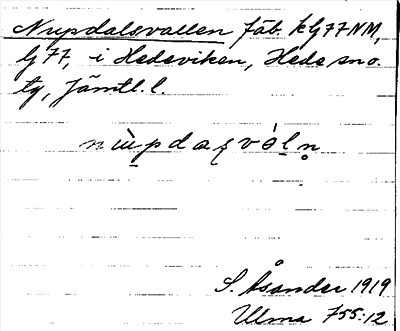 Nupdalsvallen fäb. k G77NM,
G 77, i Hedeviken, Hede sno.
tg, Jämtl. l.
nùpdaʂvòḷn̥
S. Åsander 1919
Ulma 755:12